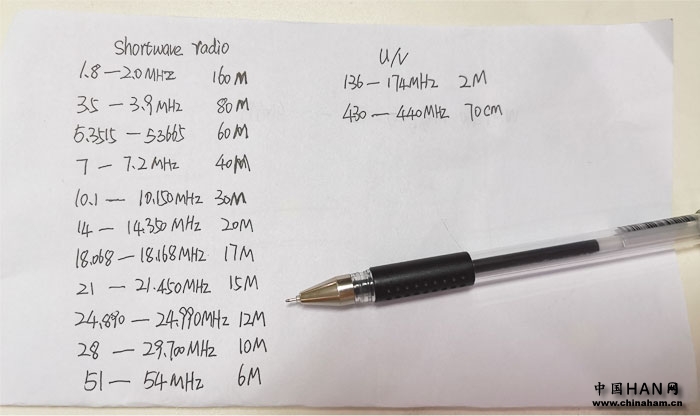 Shortwave radio
1.8 — 2.0MHz 160M
3.5 — 3.9MHz 80M
5.3515 — 5.3665 60M
7 — 7.2MHz 40M
10.1 — 10.150MHz 30M
14 — 14.350MHz 20M
18.068 — 18.168MHz 17M
21 — 21.450MHz 15M
24.890 — 24.990MHz 12M
28 — 29.700MHz 10M
51 — 54MHz 6M
U/V
136 — 174MHz 2M
430 — 440MHz 70cm
中国HAN网
www.chinaham.cn